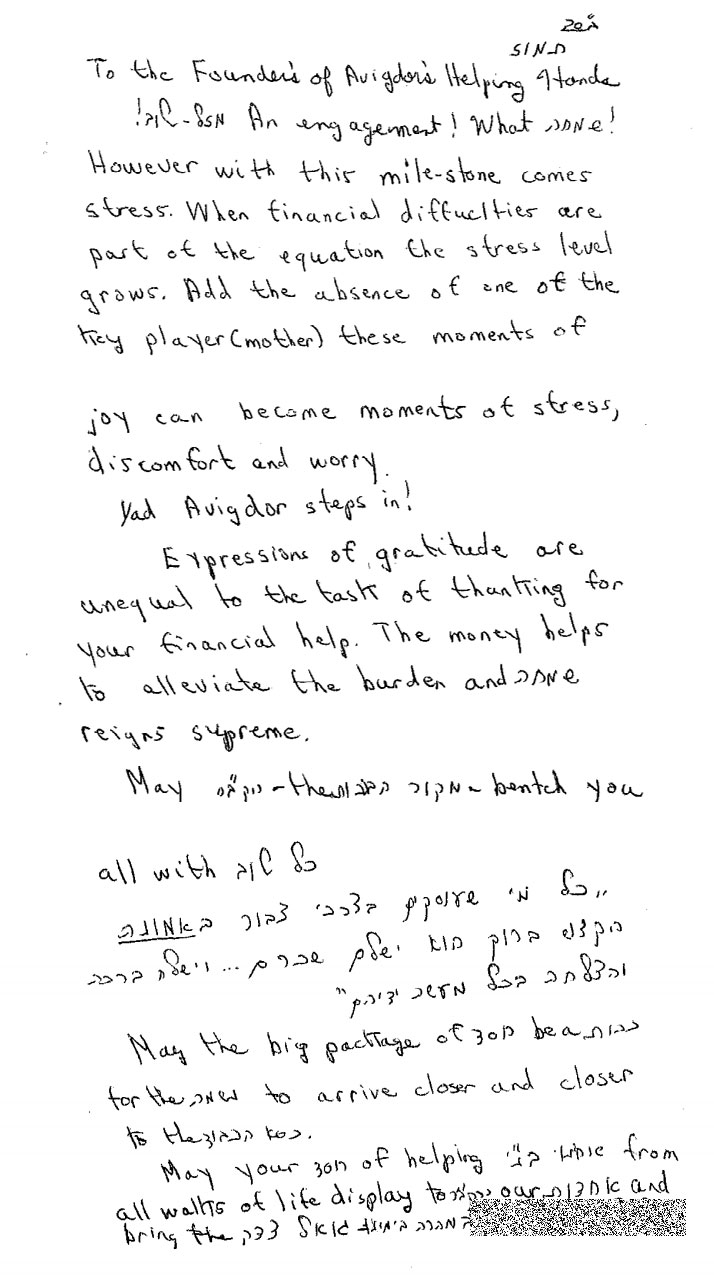 בס"ד
תמוז
To the Founder's of Avigdor's Helping Hands
מזל-טוב! An engagement! What שמחה!
However with this mile-stone comes
stress. When financial diffuclties are
part of the equation the stress level
grows. Add the absence of one of the
key player (mother) these moments of
joy can become moments of stress,
discomfort and worry.
Yad Avigdor steps in!
Expressions of gratitude are
unequal to the task of thanking for
your financial help. The money helps
to alleviate the burden and שמחה
reigns supreme.
May הקב"ה - the מקור הברכות - bentch you
all with כל טוב
"כל מי שעוסקים בצרכי צבור באמונה
הקדוש ברוך הוא ישלם שכרם ... וישלח ברכה
והצלחה בכל מעשה ידיהם"
May the big package of חסד be a זכות
for the נשמה to arrive closer and closer
to the כסא הכבוד.
May your חסד of helping אחינו בנ"י from
all walks of life display to הקב"ה our אחדות and
bring the במהרה בימינו גואל צדק